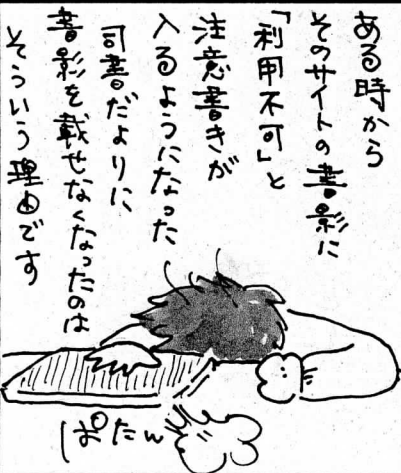 ある時から
そのサイトの書影に
「利用不可」と
注意書きが
入るようになった
司書だよりに
書影を載せなくなったのは
そういう理由です
ぱたん